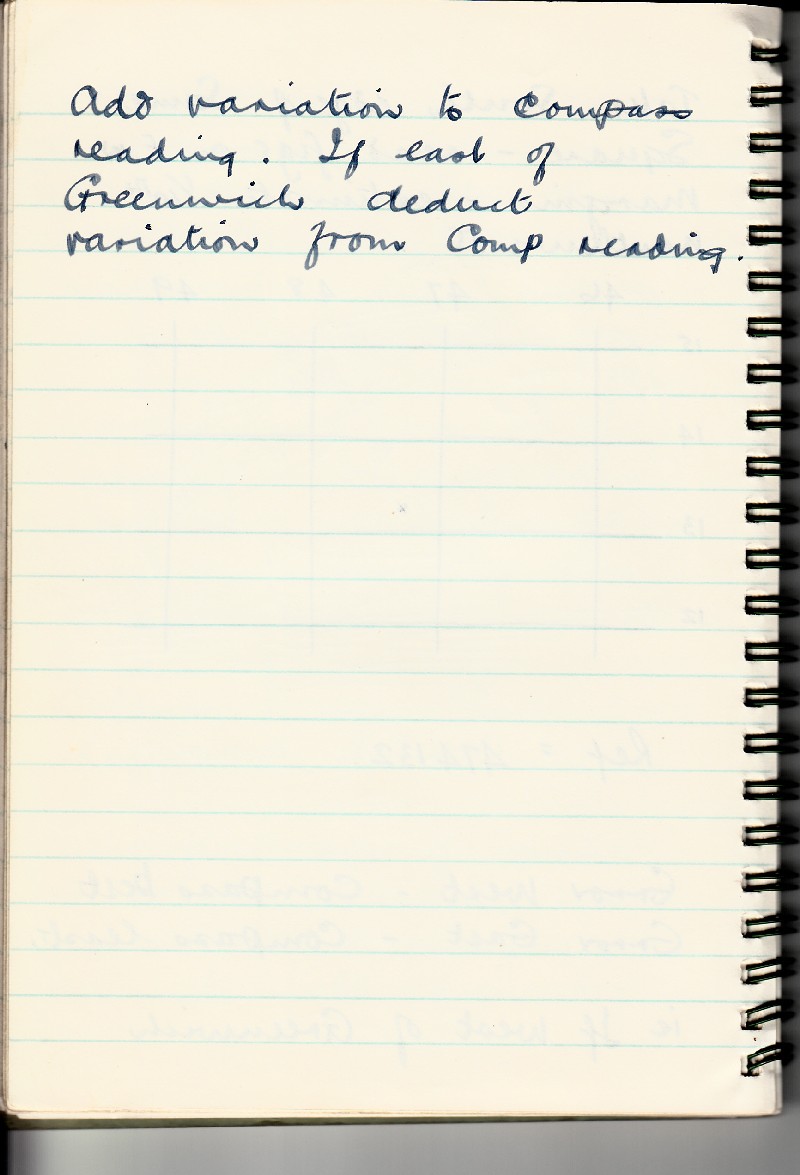 Add variation to compass
reading. If east of
Greenwich deduct
variation from Comp reading.